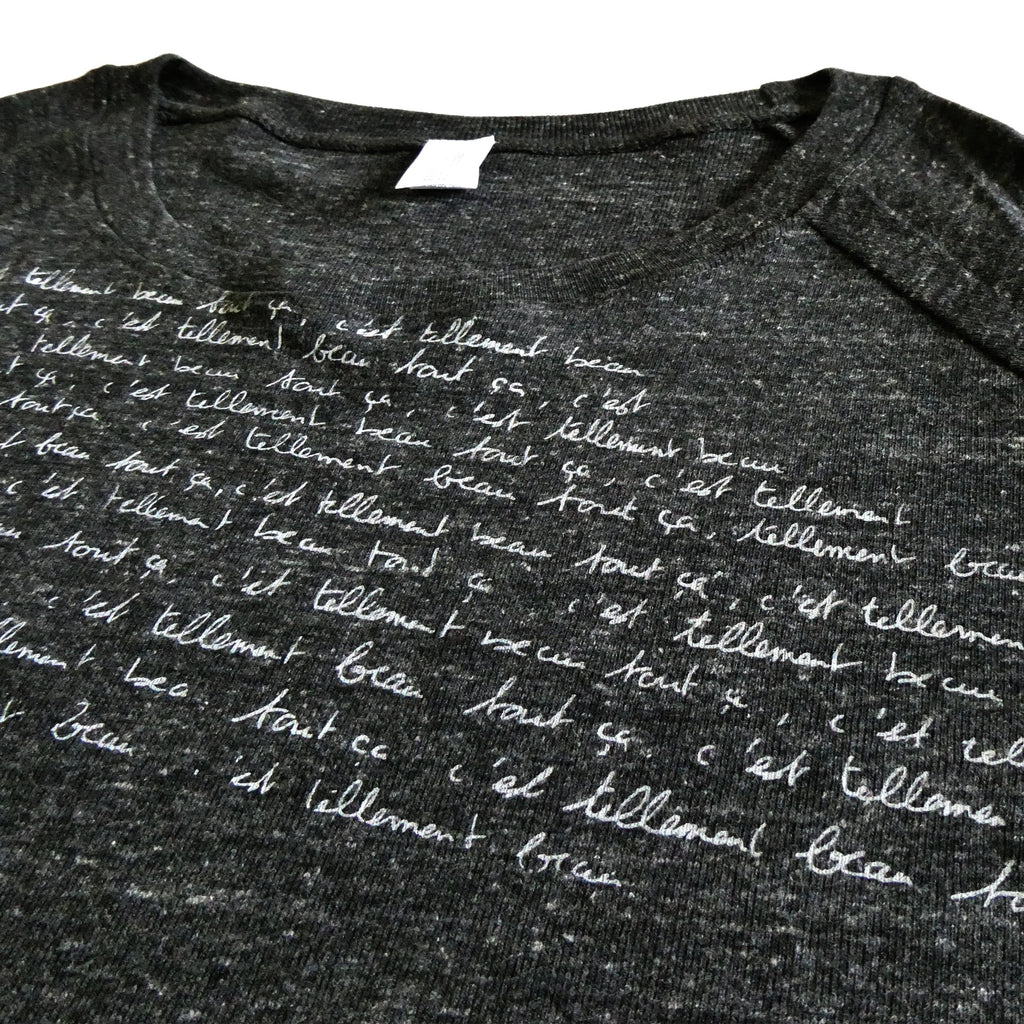 tellement beau tout ça, c'est tellement beau
ça, c'est tellement beau tout ça, c'est
tellement beau tout ça, c'est tellement beau
ça, c'est tellement beau tout ça, c'est tellement
tout ça c'est tellement beau tout ça, tellement beau
beau tout ça, c'est tellement beau tout ça, c'est tellement
c'est tellement beau tout ça c'est tellement beau
tout ça, c'est tellement beau tout ça, c'est
c'est tellement beau tout ça, c'est tellement
beau tout ça c'est tellement beau
beau c'est tellement beau